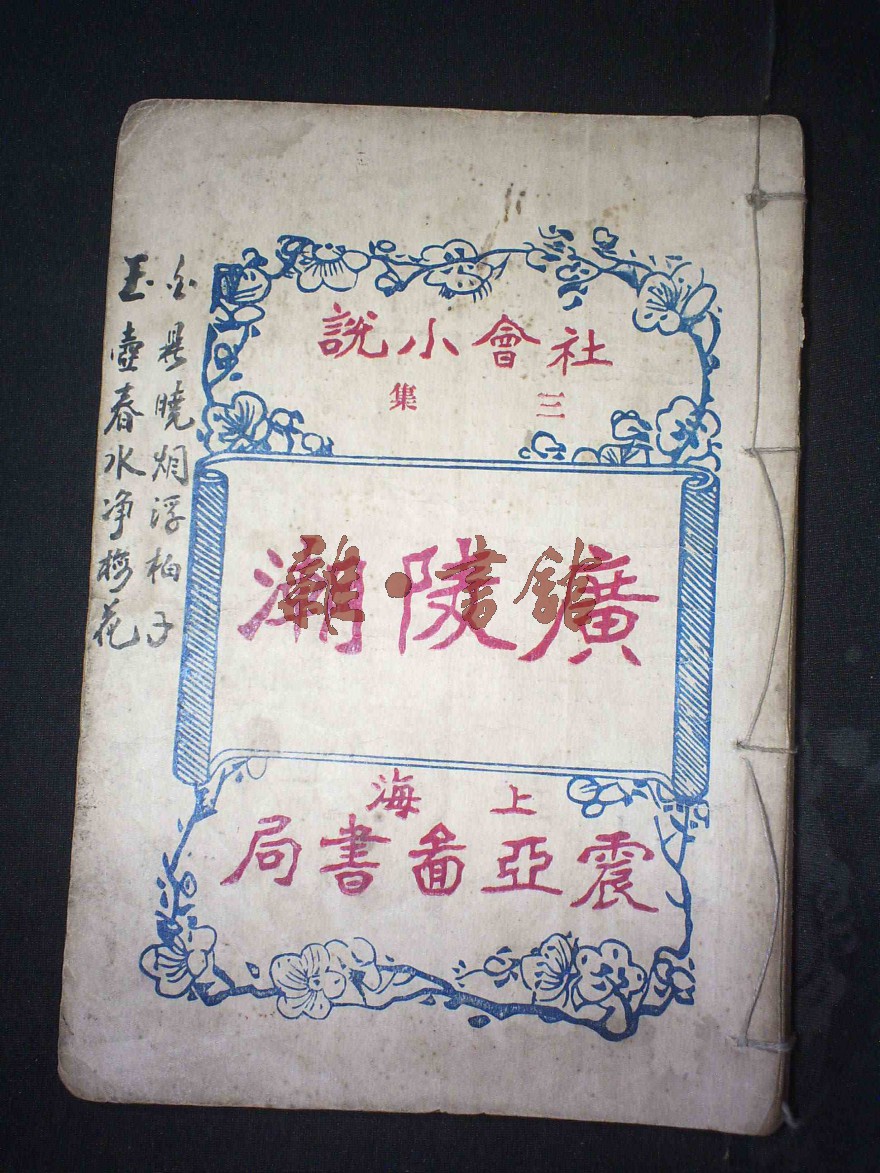 社會小說
三集
廣陵潮
上海
震亞啚書局
曉烟浮柏子
玉壺春水净梅花
書館